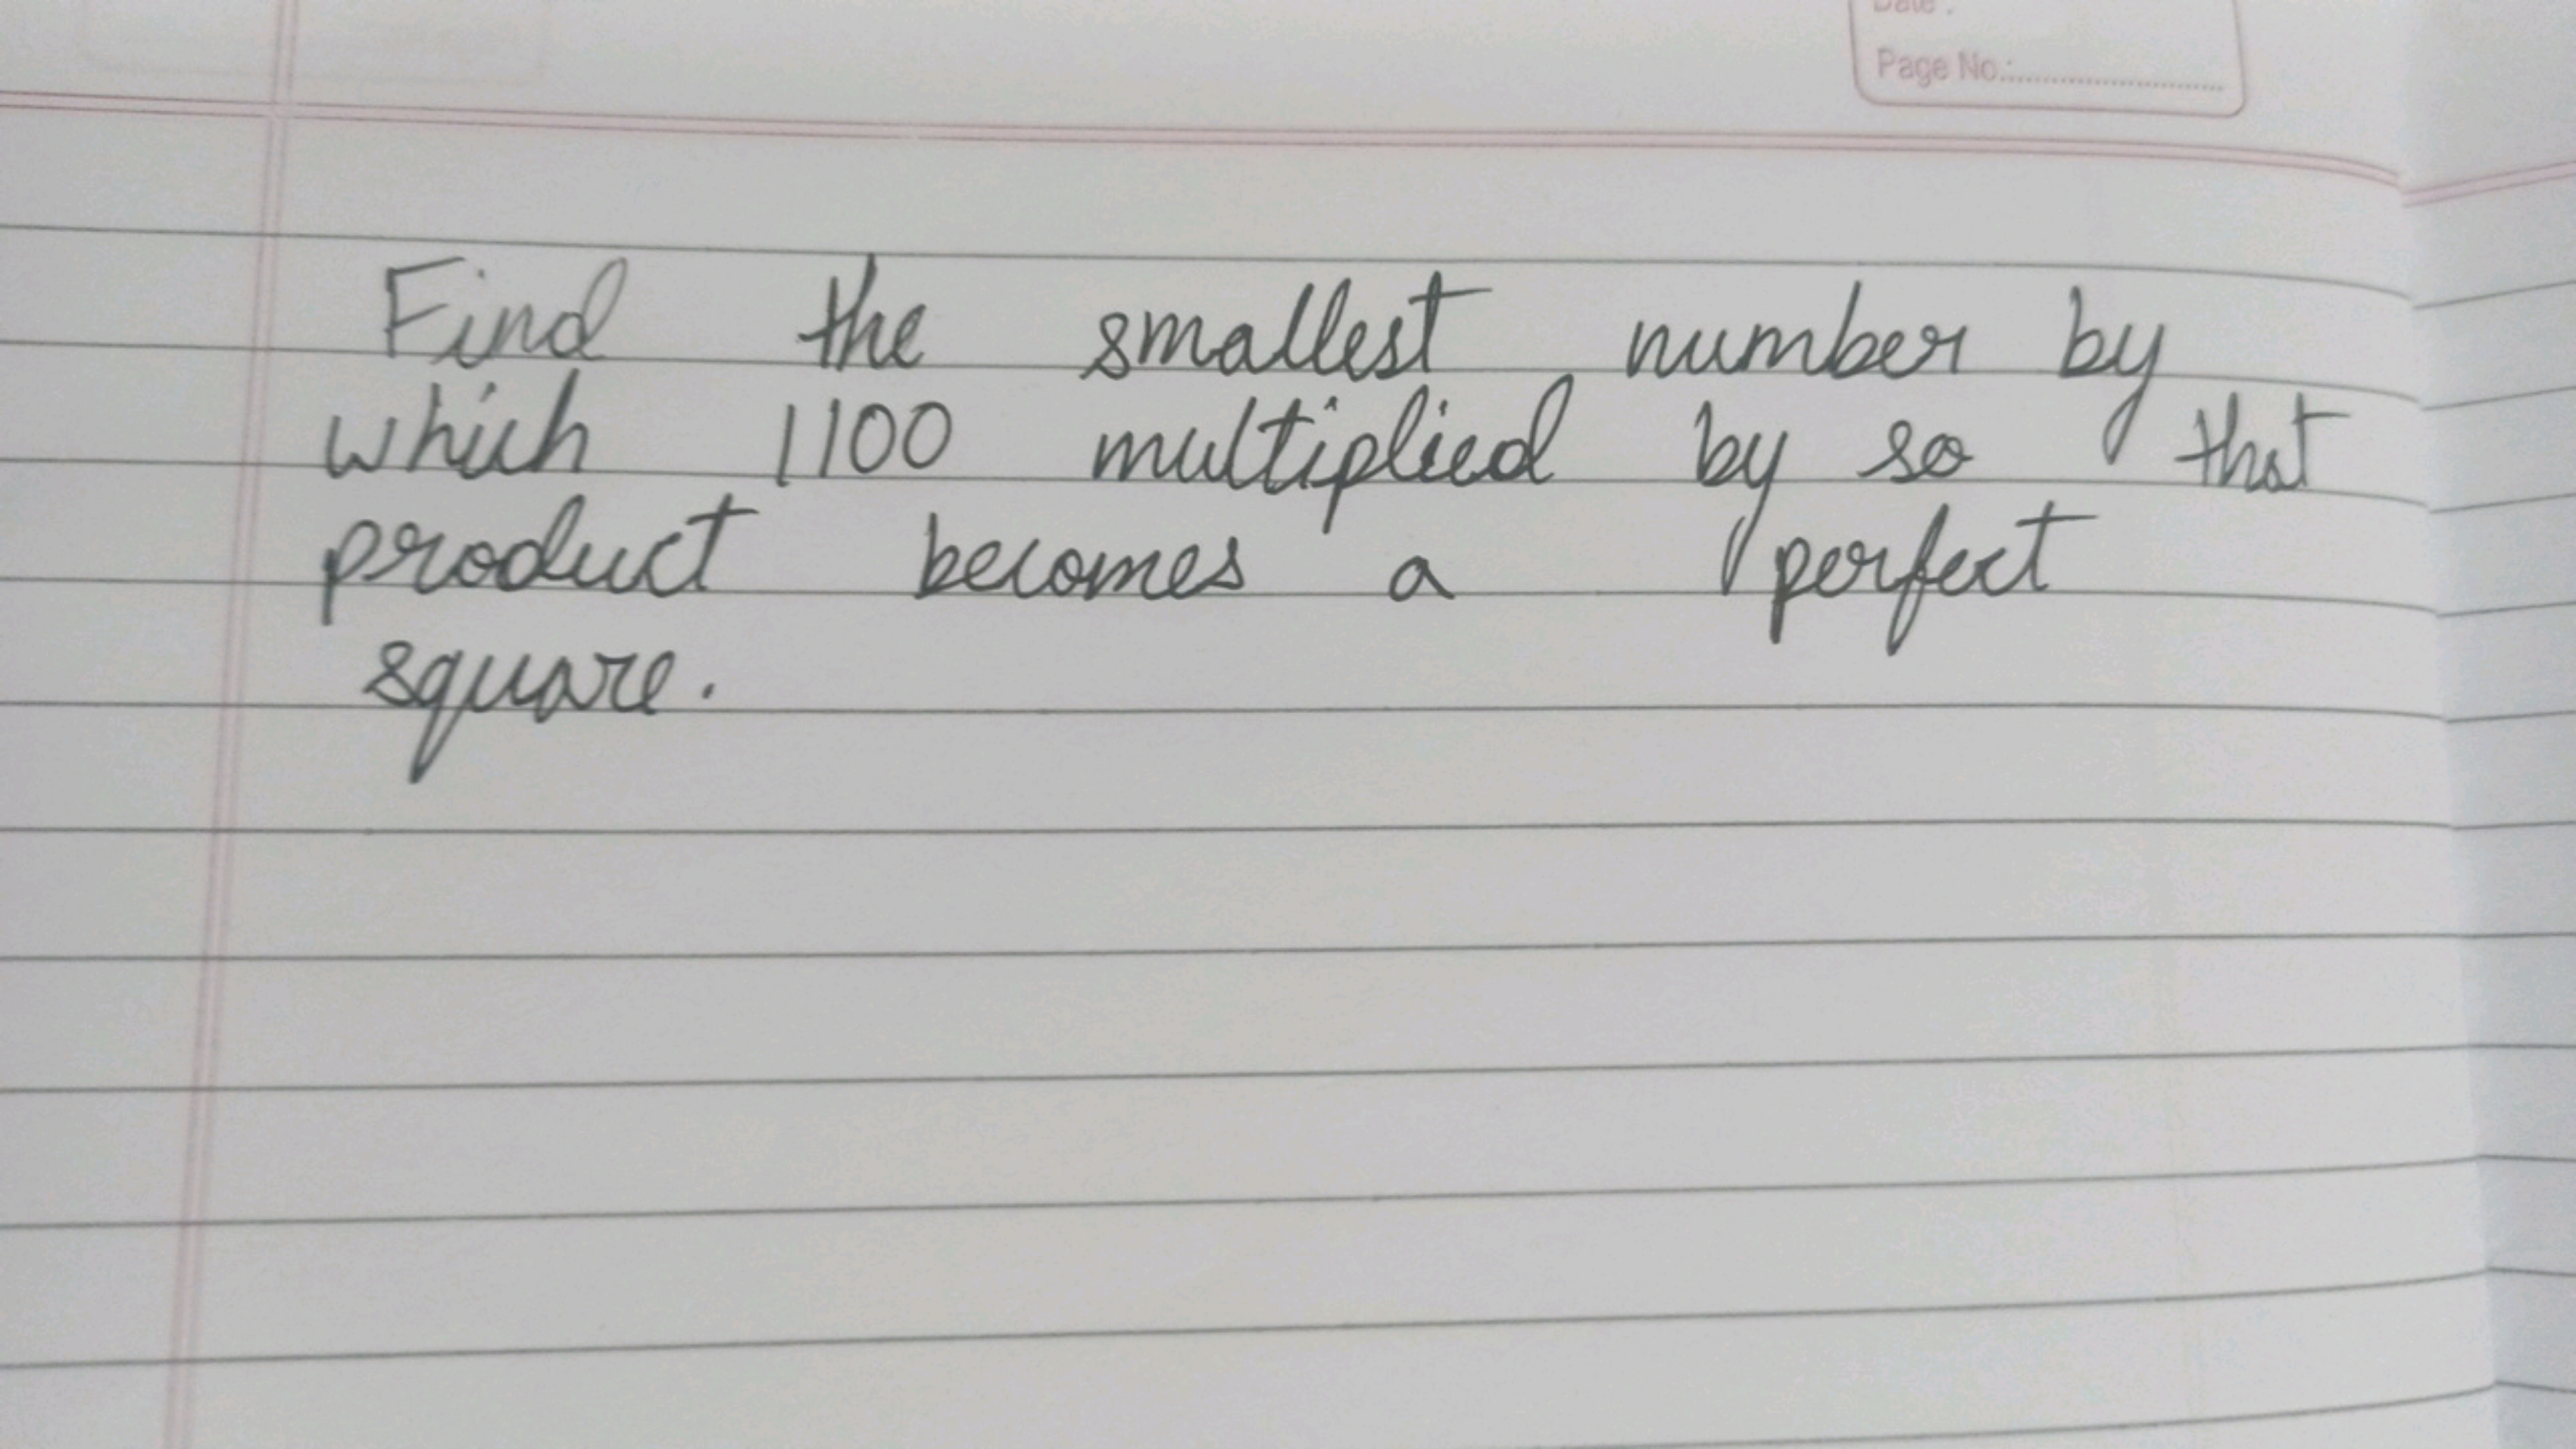 Date :
Page No.:
Find the smallest number by
which 1100 multiplied by so that
product becomes a perfect
square.